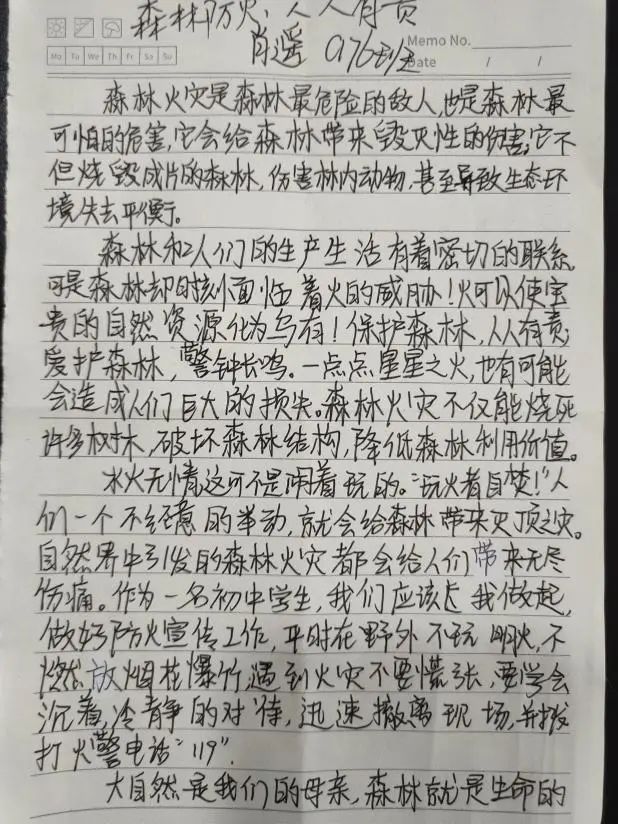 森林防火，人人有责
肖遥 076班
Memo No.
Date / /
Mo Tu We Th Fr Sa Su
森林火灾是森林最危险的敌人，也是森林最
可怕的危害，它会给森林带来毁灭性的伤害；它不
但烧毁成片的森林，伤害林内动物，甚至导致生态环
境失去平衡。
森林和人们的生产生活有着密切的联系，
可是森林却时刻面临着火的威胁！火可以使宝
贵的自然资源化为乌有！保护森林，人人有责；
爱护森林，警钟长鸣。一点点星星之火，也有可能
会造成人们巨大的损失。森林火灾不仅能烧死
许多树木，破坏森林结构，降低森林利用价值。
水火无情，这可不是闹着玩的。“玩火者自焚！”人
们一个不经意的举动，就会给森林带来灭顶之灾。
自然界中引发的森林火灾都会给人们带来无尽
伤痛。作为一名初中学生，我们应该从我做起，
做好防火宣传工作，平时在野外不玩明火，不
燃放烟花爆竹，遇到火灾不要慌张，要学会
沉着，冷静的对待，迅速撤离现场，并拨
打火警电话“119”。
大自然是我们的母亲，森林就是生命的